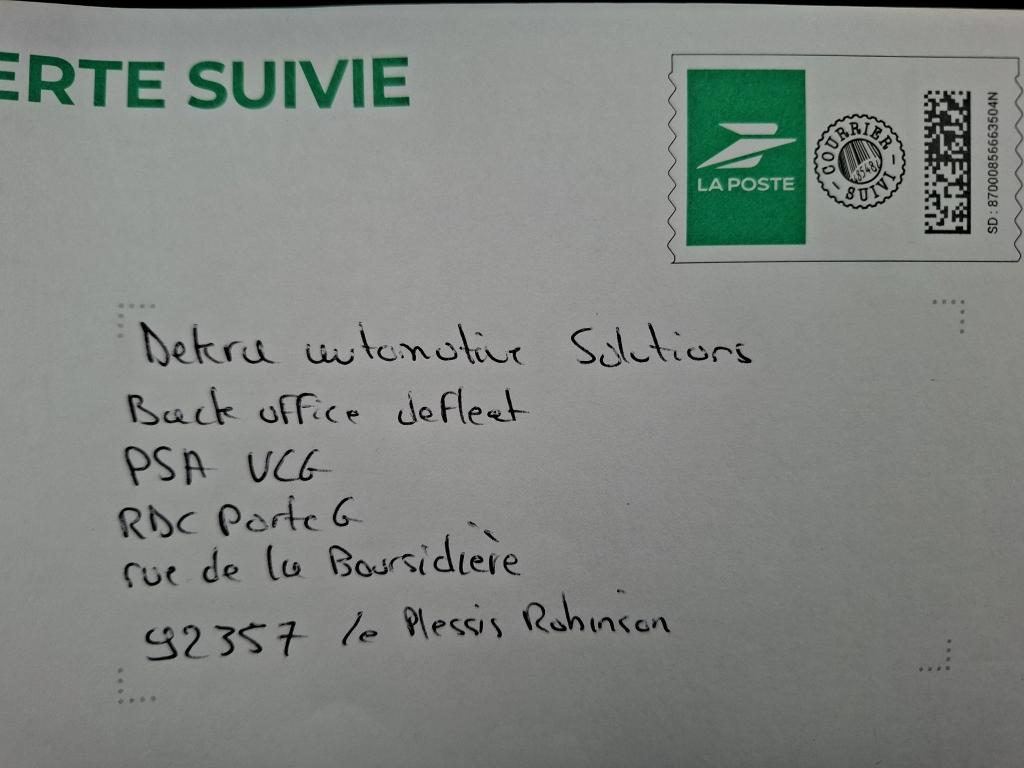 ERTE SUIVIE
LA POSTE
COURRIER SUIVI
SD : 87000856663504N
Dekra automotive Solutions
Back office defleet
PSA VCG
RDC Porte G
rue de la Boursidière
92357 le Plessis Robinson